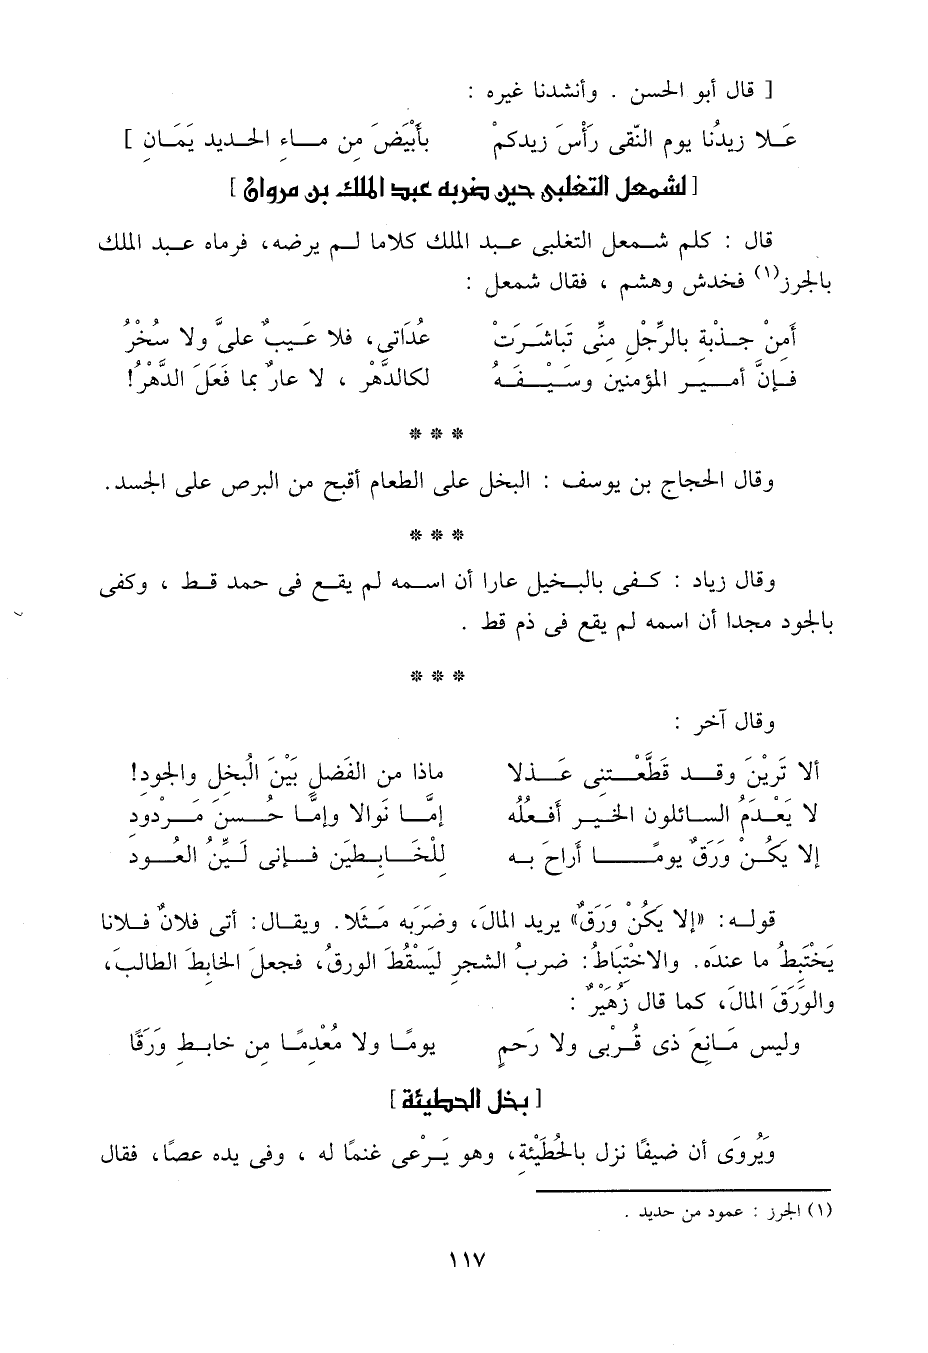 [ قال أبو الحسن . وأنشدنا غيره :
عَـلا زيدُنا يوم النَّقى رَأْسَ زيدكمْ بأَبْيَضَ مِن مـاءِ الحـديدِ يَمَـانِ ]
[ لشمعل التغلبى حين ضربه عبد الملك بن مروان ]
قال : كلم شـمعل التغلبى عـبد الملك كلاما لـم يرضه، فرماه عـبد الملك
بالجرز(١) فخدش وهشم ، فقال شمعل :
أَمِنْ جـذْبةٍ بالرِّجْلِ مِنِّى تَبَاشَـرَتْ عُدَاتِى، فلا عَـيبٌ علىَّ ولا سُخْرُ
فـإنَّ أمـير المؤمنين وسَيْـفَـهُ لكالدَّهْرِ ، لا عارٌ بما فَعَلَ الدَّهْرُ!
* * *
وقال الحجاج بن يوسف : البخل على الطعام أقبح من البرص على الجسد.
* * *
وقال زياد : كـفى بالبـخيل عارا أن اسـمه لم يقـع فى حمد قـط ، وكفى
بالجود مجدا أن اسمه لم يقع فى ذم قط .
* * *
وقال آخر :
ألا تَرَيْنَ وقـد قَطَّعْـتنى عَـذلا ماذا من الفَضلِ بَيْنَ البُخلِ والجودِ!
لا يَعْـدَمُ السـائلون الخـيرَ أَفْعلُهُ إمَّـا نَوالا وإمَّا حُـسنَ مَـرْدودِ
إلا يَكُـنْ وَرَقٌ يومًـا أَراحَ بـه للْخَـابِطَين فـإنى لَـيِّنُ العُـودِ
قولـه: «إلا يَكُنْ وَرَقٌ» يريد المالَ، وضَرَبه مَـثَلا. ويقـال: أتى فلانٌ فـلانا
يَخْتَبِطُ ما عندَه. والاخْتِبَاطُ: ضربُ الشجرِ ليَسْقُطَ الورقُ، فجعل الخابطَ الطالبَ،
والوَرَقَ المالَ، كما قال زُهَيْرٌ :
وليس مَـانِعَ ذى قُـرْبى ولا رَحمٍ يومًـا ولا مُعْدِمًـا من خابـط وَرَقًا
[ بخل الحطيئة ]
وَيُرْوَى أن ضيفًا نزل بالحُطَيْئِة، وهو يَـرْعى غنمًا له ، وفى يده عصًا، فقال
(١) الجرز : عمود من حديد .
١١٧